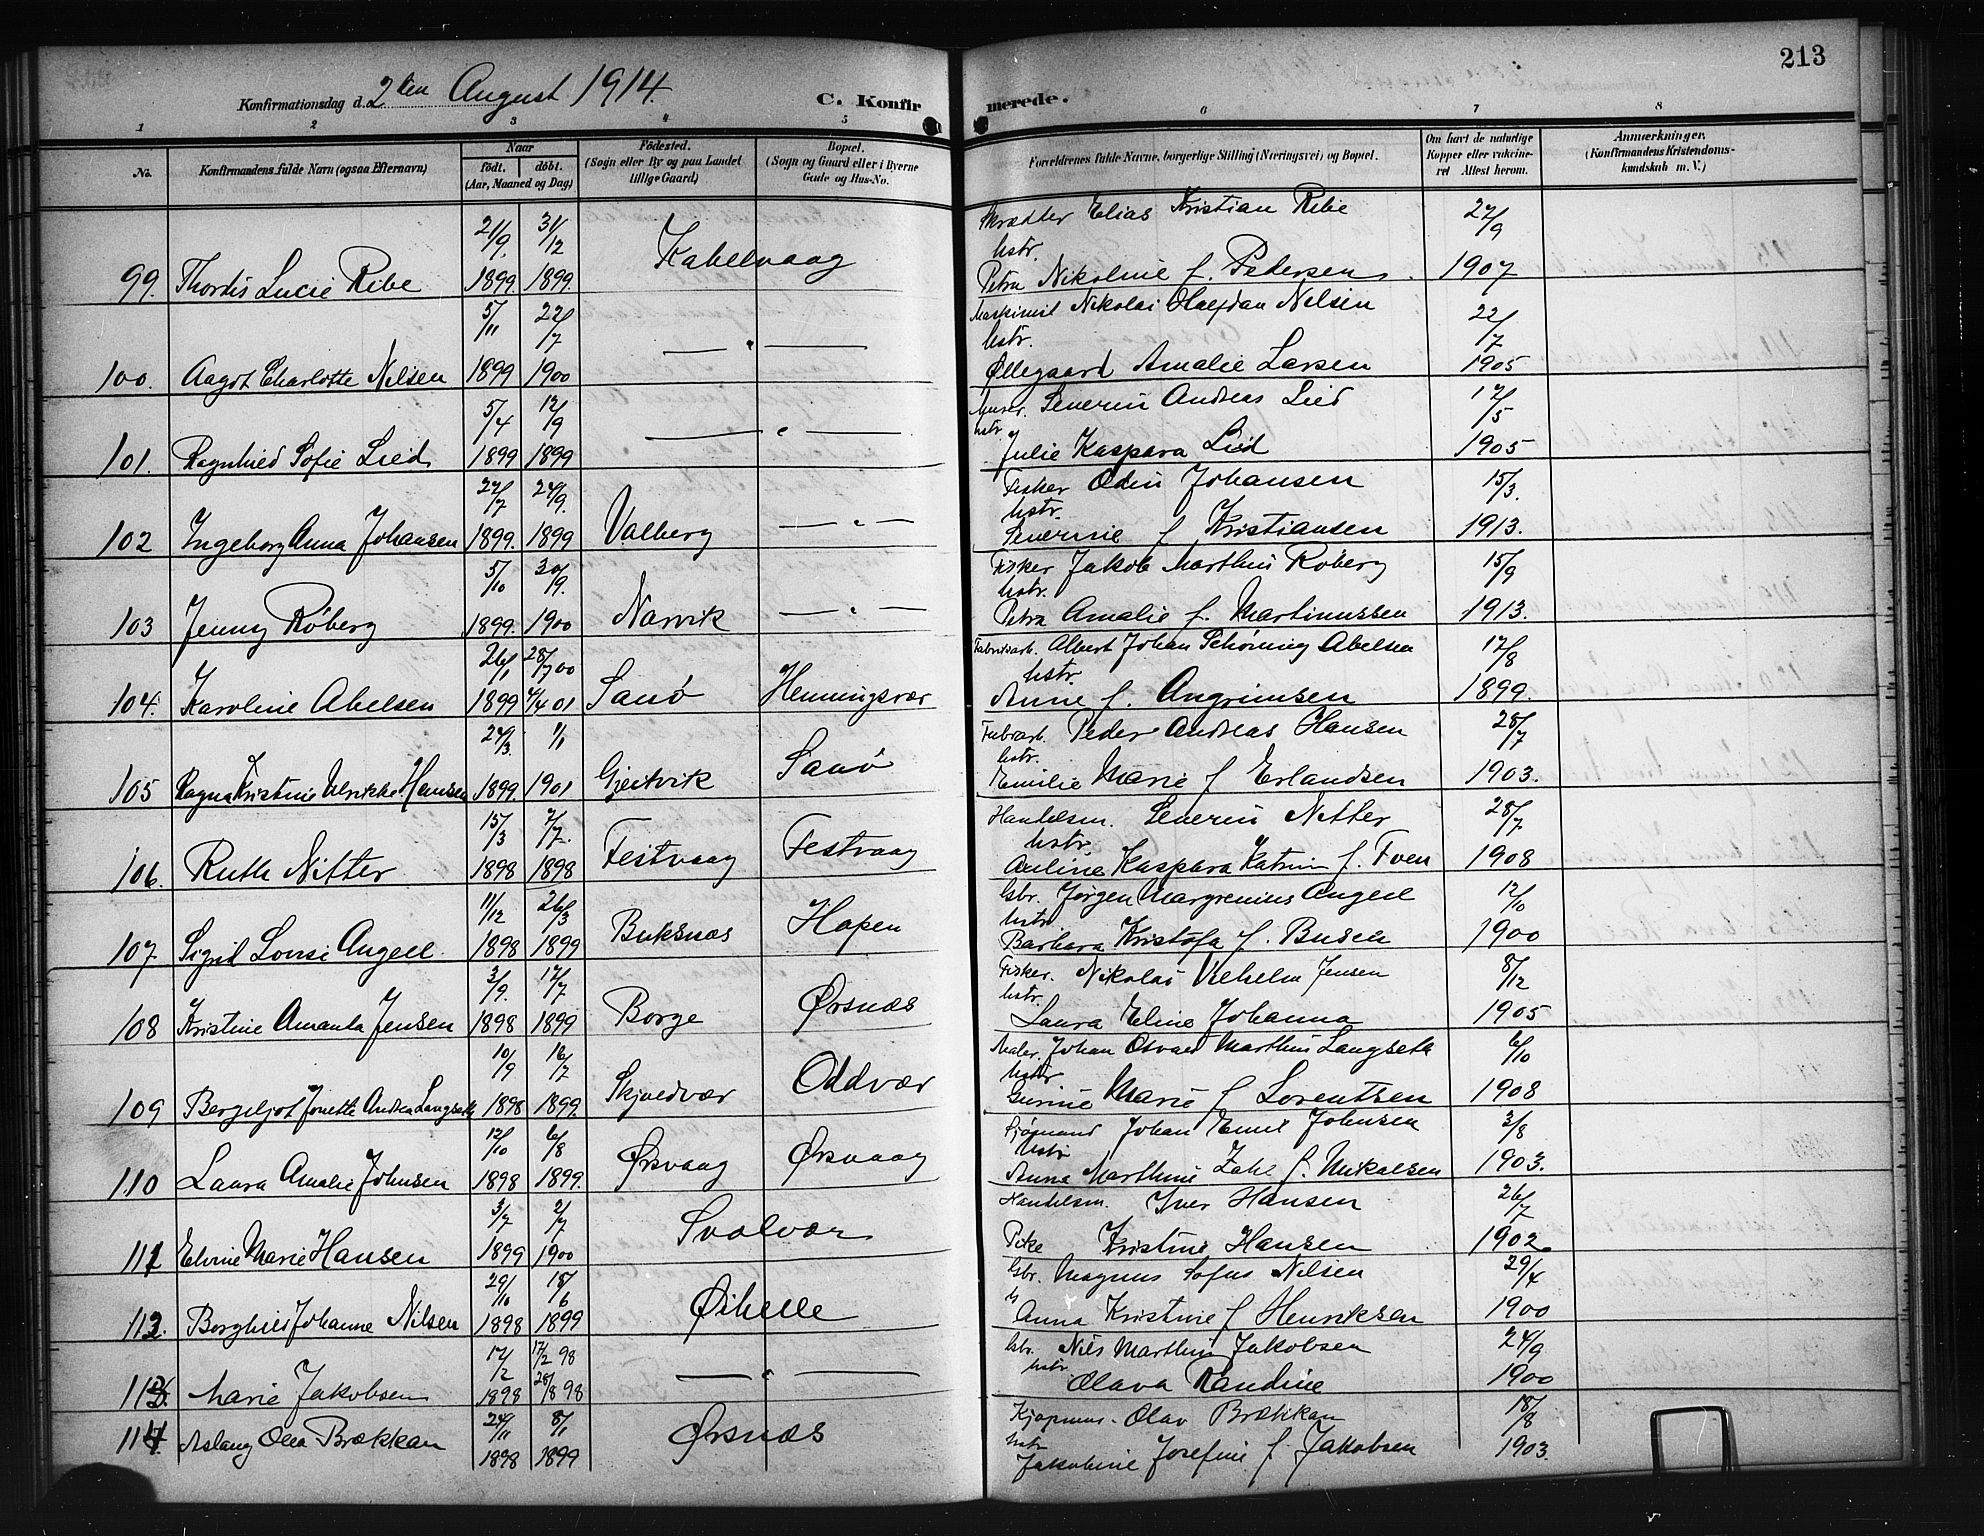 213
Konfirmationsdag d. 2den August 1914.
C. Konfirmerede.
1 2 3 4 5 6 7 8
No. Konfirmandens fulde Navn (ogsaa Efternavn) Naar født. døbt. (Aar, Maaned og Dag) Fødested. (Sogn eller By og paa Landet tillige Gaard) Bopæl. (Sogn og Gaard eller i Byerne Gade og Hus-No. Forældrenes fulde Navne, borgerlige Stilling (Næringsvei) og Bopæl. Om havt de naturlige Kopper eller vakcineret Attest herom. Anmærkninger. (Konfirmandens Kristendomskundskab m. V.)
21/9 31/12 Skrædder Elias Kristian Ribe 27/9
hstr.
99. Thordis Lucie Ribe 1899. 1899. Kabelvaag Petra Nikoline f. Pedersen 1907
5/11 22/7 Maskinist Nikolai Halfdan Nilsen 22/7
hstr.
100. Aagot Charlotte Nilsen 1899 1900 — " — Øllegaard Amalie Larsen 1905
5/4 17/9 Severin Andreas Lied 17/5
hstr.
101. Ragnhild Sofie Lied 1899 1899 — " — Julie Kaspara Lied 1905
27/7 24/9. Fisker Odin Johansen 15/3.
hstr.
102 Ingeborg Anna Johansen 1899. 1899 Valberg — " — Severine f Kristiansen 1913.
5/10 30/9. Fisker Jakob Marthin Røberg 15/9
hstr.
103 Jenny Røberg 1899. 1900 Narvik — " — Petra Amalie f. Martinussen 1913.
26/1 28/7 00 Fabrikarb. Albert Johan Schøning Abelsen 17/8
hstr.
104. Karoline Abelsen 1899 4/4 01 Sanø Henningsvær Anne f. Angrimsen 1899.
24/3. 1/1 Fabrarb. Peder Andreas Hansen 28/7
hstr.
105 Ragna Kristine Ulrikke Hansen 1899. 1901 Gjeitvik Sanø Emilie Marie f Erlandsen 1903.
15/3 7/7. Handelsm. Severin Nitter 28/7
hstr.
106. Ruth Nitter 1898 1898 Festvaag Festvaag Auline Kaspara Katrin f. Foen 1908
11/12 26/3 Gbr. Jørgen Margrenius Angell 12/10
hstr
107 Sigrid Lovise Angell. 1898 1899 Buksnæs Hopen Barbara Kristofa f. Busch 1900
3/9. 17/7 Fisker. Nikolai Vilhelm Jensen 8/12
hstr.
108 Kristine Amanda Jensen 1898 1899 Borge Ørsnæs Laura Eline Johanna 1905
10/9 16/7 Maler. Johan Osvald Marthin Langseth 6/10
hstr
109 Bergeljot Jonette Andrea Langseth 1898 1899. Skjveldvær Oddvær Gurine Marie f Lorentsen 1908
12/10 6/8 Sjømand Johan Emil Johnsen 3/8
hstr
110 Laura Amalie Johnsen 1898 1899. Ørsvaag Ørsvaag Anna Marthine Zahl f. Mikalsen 1903.
3/7 2/7 Handelsm. Iver Hansen 26/7
111 Elvine Marie Hansen 1899 1900 Svolvær Pike Kristine Hansen 1902.
29/10 18/6 Gbr. Magnus Sofus Nilsen 29/4
h
112. Borghild Johanne Nilsen 1898 1899 Øihelle Anna Kristine f Henriksen 1900
17/2 17/2 98 Gbr. Nils Marthin Jakobsen 24/9
hstr
113. Marie Jakobsen 1898 28/8 98 — " — Olava Randine 1900
24/11 8/1 Kjøpm. Olav Brækkan 18/8
hstr
114. Aslaug Olea Brækkan 1898 1899 Ørsnæs Jakobine Josefine f Jakobsen 1903.